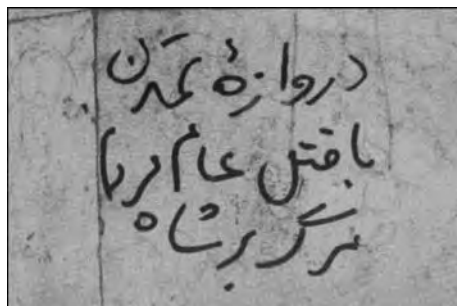 دروازهٔ تمدن
با قتل عام مردم
مرگ بر شاه